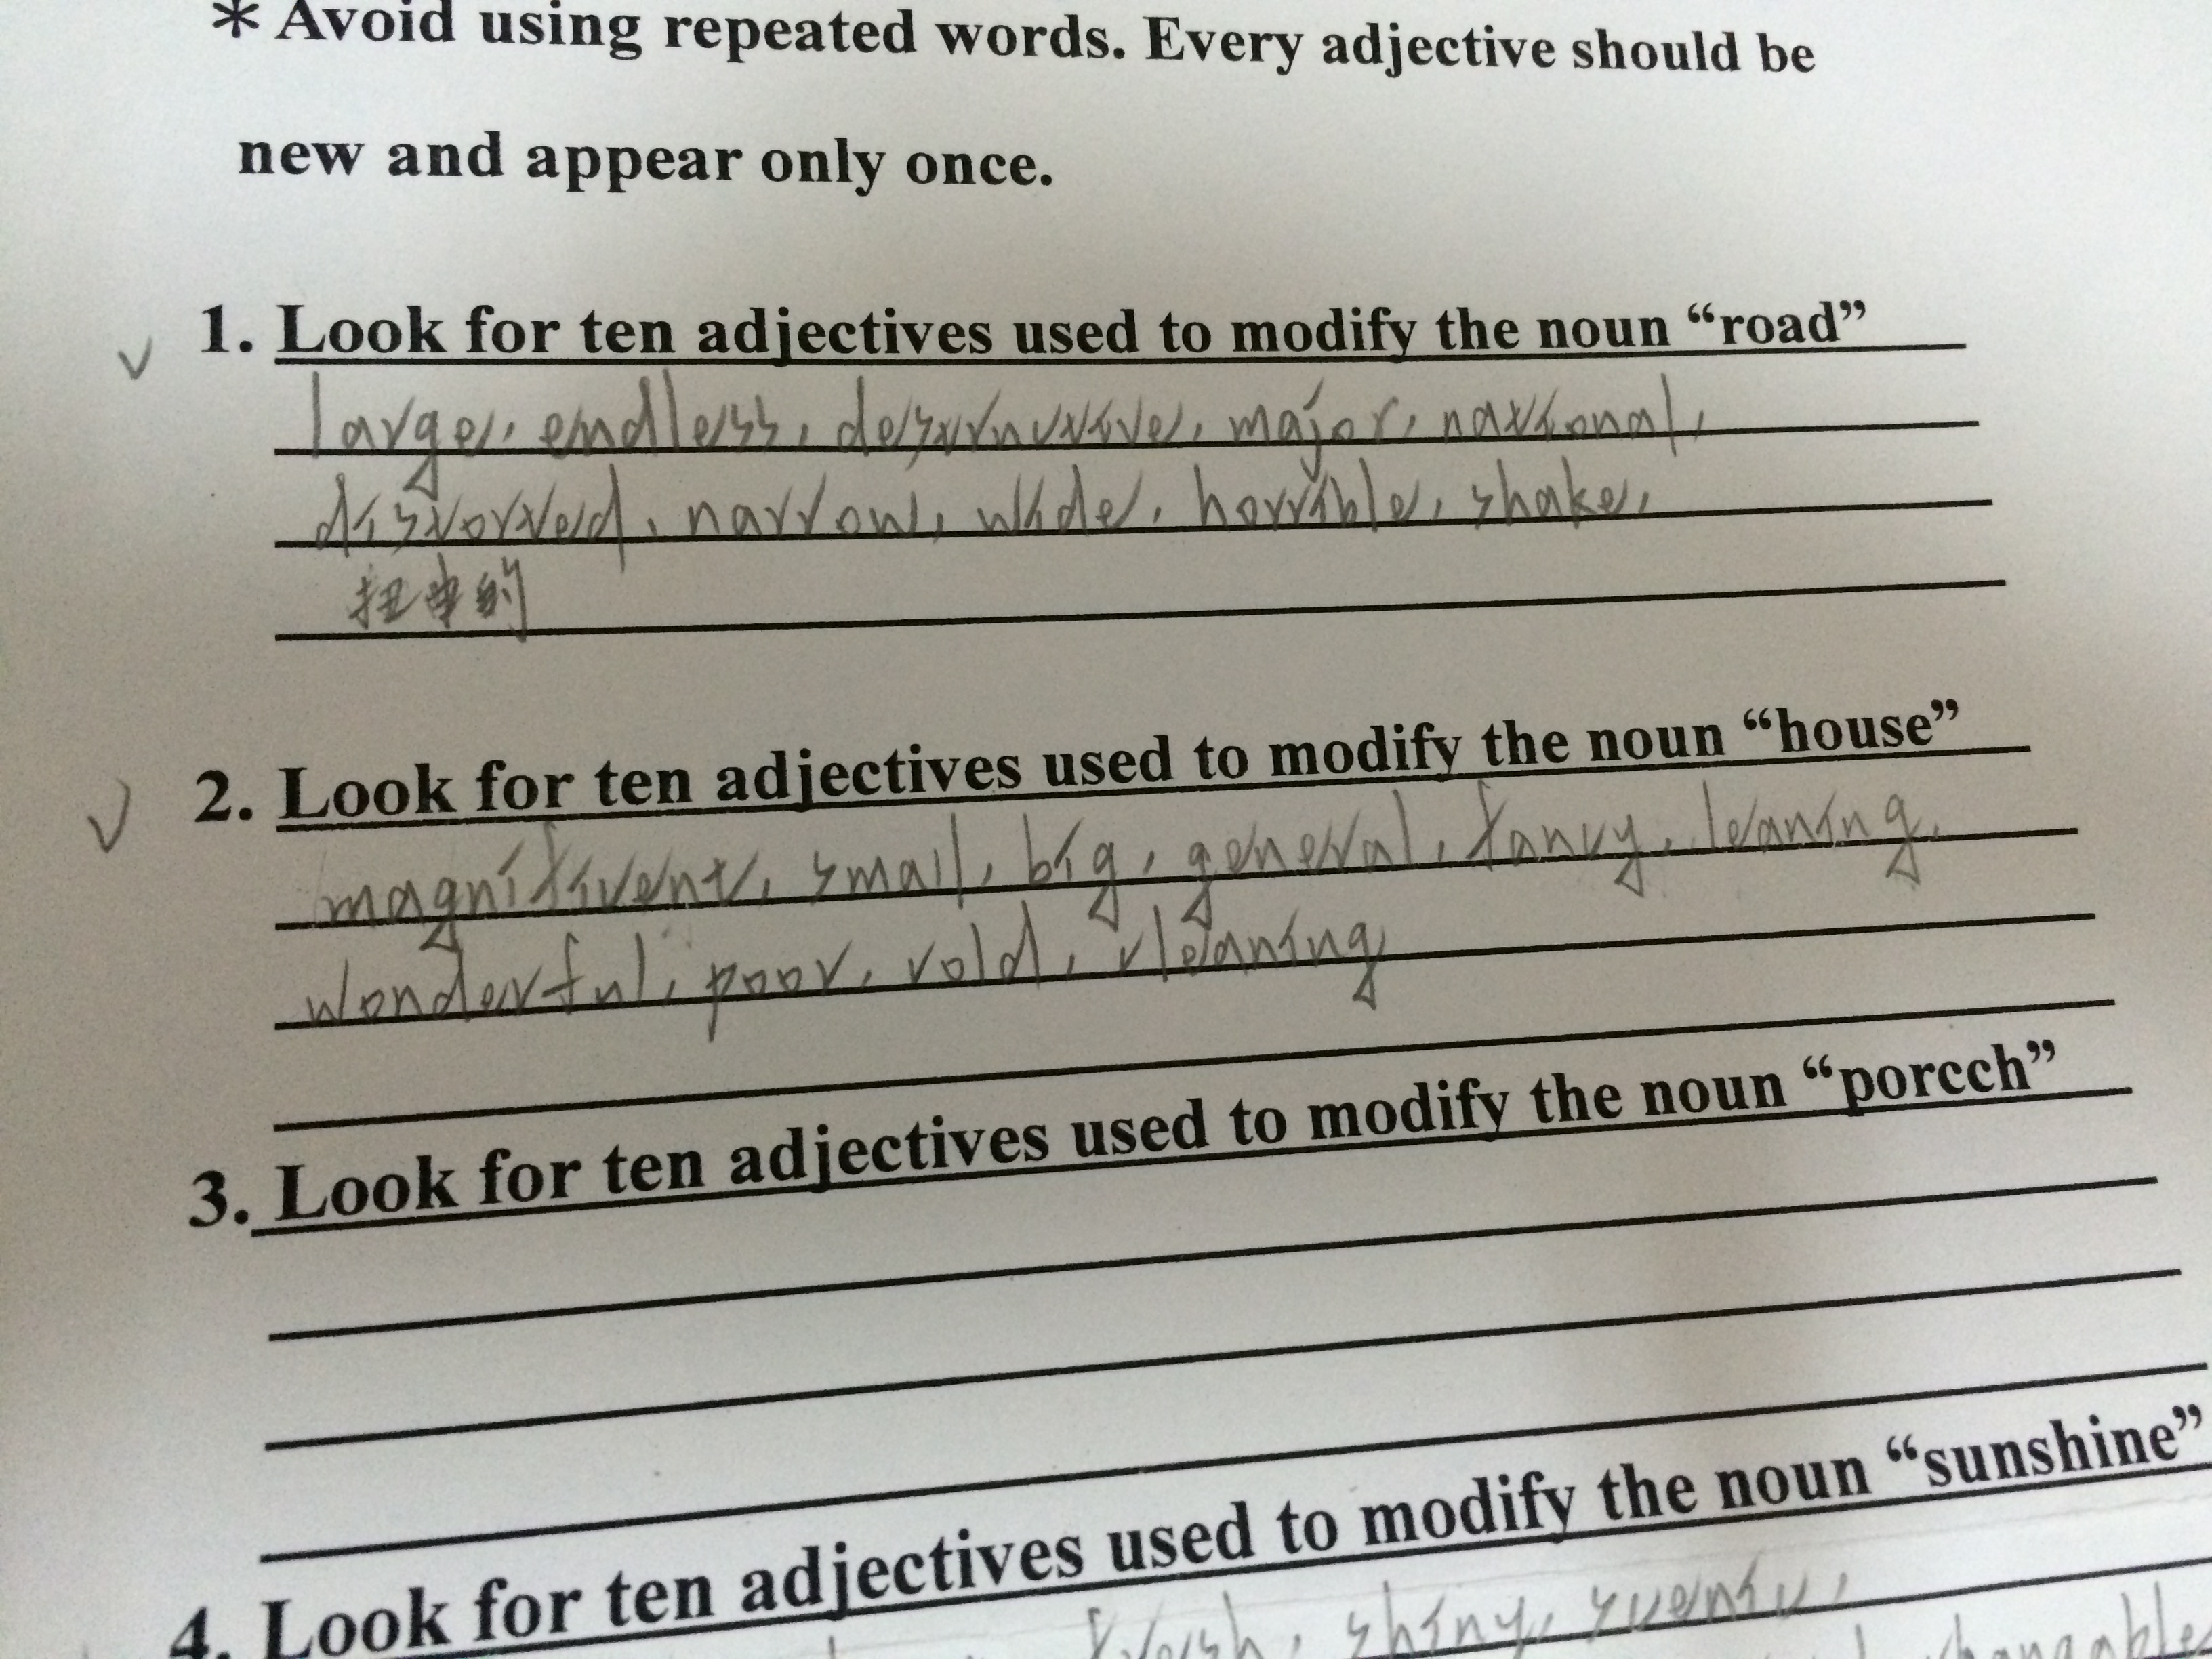 * Avoid using repeated words. Every adjective should be
new and appear only once.
1. Look for ten adjectives used to modify the noun “road”
large, endless, destructive, major, national,
distorted, narrow, wide, horrible, shake,
扭曲的
2. Look for ten adjectives used to modify the noun “house”
magnificent, small, big, general, fancy, leaning,
wonderful, poor, cold, cleaning
3. Look for ten adjectives used to modify the noun “porcch”
4. Look for ten adjectives used to modify the noun “sunshine”
fresh, shiny, scenic,
changable